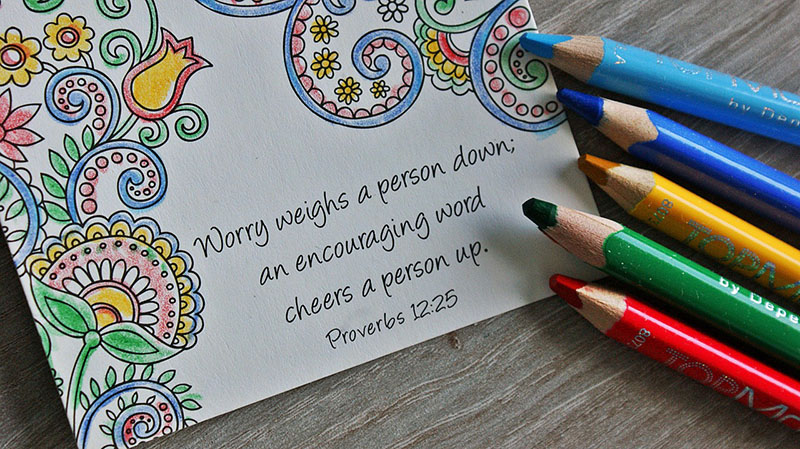 Worry weighs a person down;
an encouraging word
cheers a person up.
Proverbs 12:25
by Depe
TOPMO
by Depe
8071
TOPMO